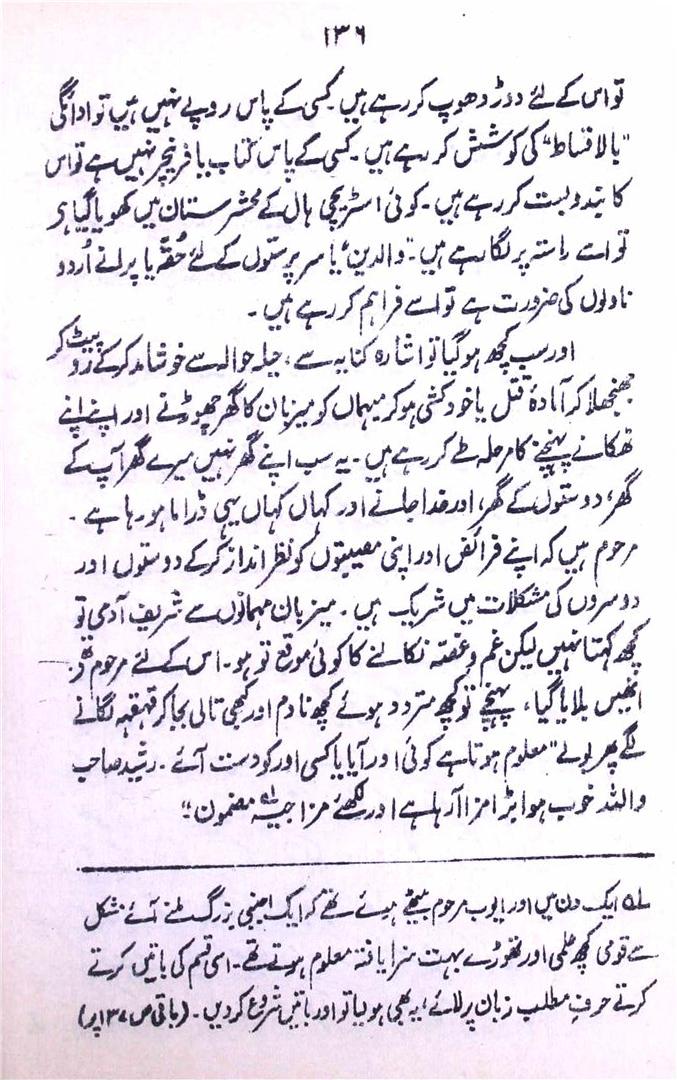 ۱۳۶
تو اس کے لئے دوڑ دھوپ کر رہے ہیں۔ کسی کے پاس روپے نہیں ہیں تو ادائگی
"بالاقساط" کی کوشش کر رہے ہیں۔ کسی کے پاس کتاب یا فرنیچر نہیں ہے تو اس
کا بندوبست کر رہے ہیں۔ کوئی اسٹریچی ہال کے محشرستان میں کھویا گیا ہی
تو اسے راستہ پر لگا رہے ہیں۔ "والدین" یا سرپرستوں کے لئے حُقّہ یا پرانے اُردو
ناولوں کی ضرورت ہے تو اسے فراہم کر رہے ہیں۔
اور سب کچھ ہو گیا تو اشارہ کنایہ سے، حیلہ حوالہ سے خوشامد کر کے رو پیٹ کر
جھنجھلا کر آمادۂ قتل یا خودکشی ہو کر میہماں کو میزبان کا گھر چھوڑنے اور اپنے اپنے
ٹھکانے پہنچنے کا مرحلہ طے کر رہے ہیں۔ یہ سب اپنے گھر نہیں میرے گھر آپ کے
گھر، دوستوں کے گھر، اور خدا جانے اور کہاں کہاں یہی ڈراما ہو رہا ہے۔
مرحوم ہیں کہ اپنے فرائض اور اپنی مصیبتوں کو نظر انداز کر کے دوستوں اور
دوسروں کی مشکلات میں شریک ہیں۔ میزبان مہمانوں سے شریف آدمی تو
کچھ کہتا نہیں لیکن غم و غصّہ نکالنے کا کوئی موقع تو ہو۔ اس کے لئے مرحوم
انھیں بلایا گیا، پہنچے تو کچھ متردد ہوئے کچھ نادم اور کبھی تالی بجا کر قہقہہ لگانے
لگے پھر بولے "معلوم ہوتا ہے کوئی اور آیا یا کسی اور کو دست آئے۔ رشید صاحب
واللہ خوب ہوا بڑا مزا آ رہا ہے اور لکھئے مزاحیہ لہ مضمون"؛
لہ ایک دن میں اور ایوب مرحوم بیٹھے ہوئے تھے کہ ایک اجنبی بزرگ ملنے آئے شکل
سے قومی کچھ علمی اور تھوڑے بہت سزا یافتہ معلوم ہوتے تھے۔ اسی قسم کی باتیں کرتے
کرتے حرفِ مطلب زبان پر لائے، یہ بھی ہو لیا تو اور باتیں شروع کر دیں۔ (باقی ص ۱۳۷ پر)